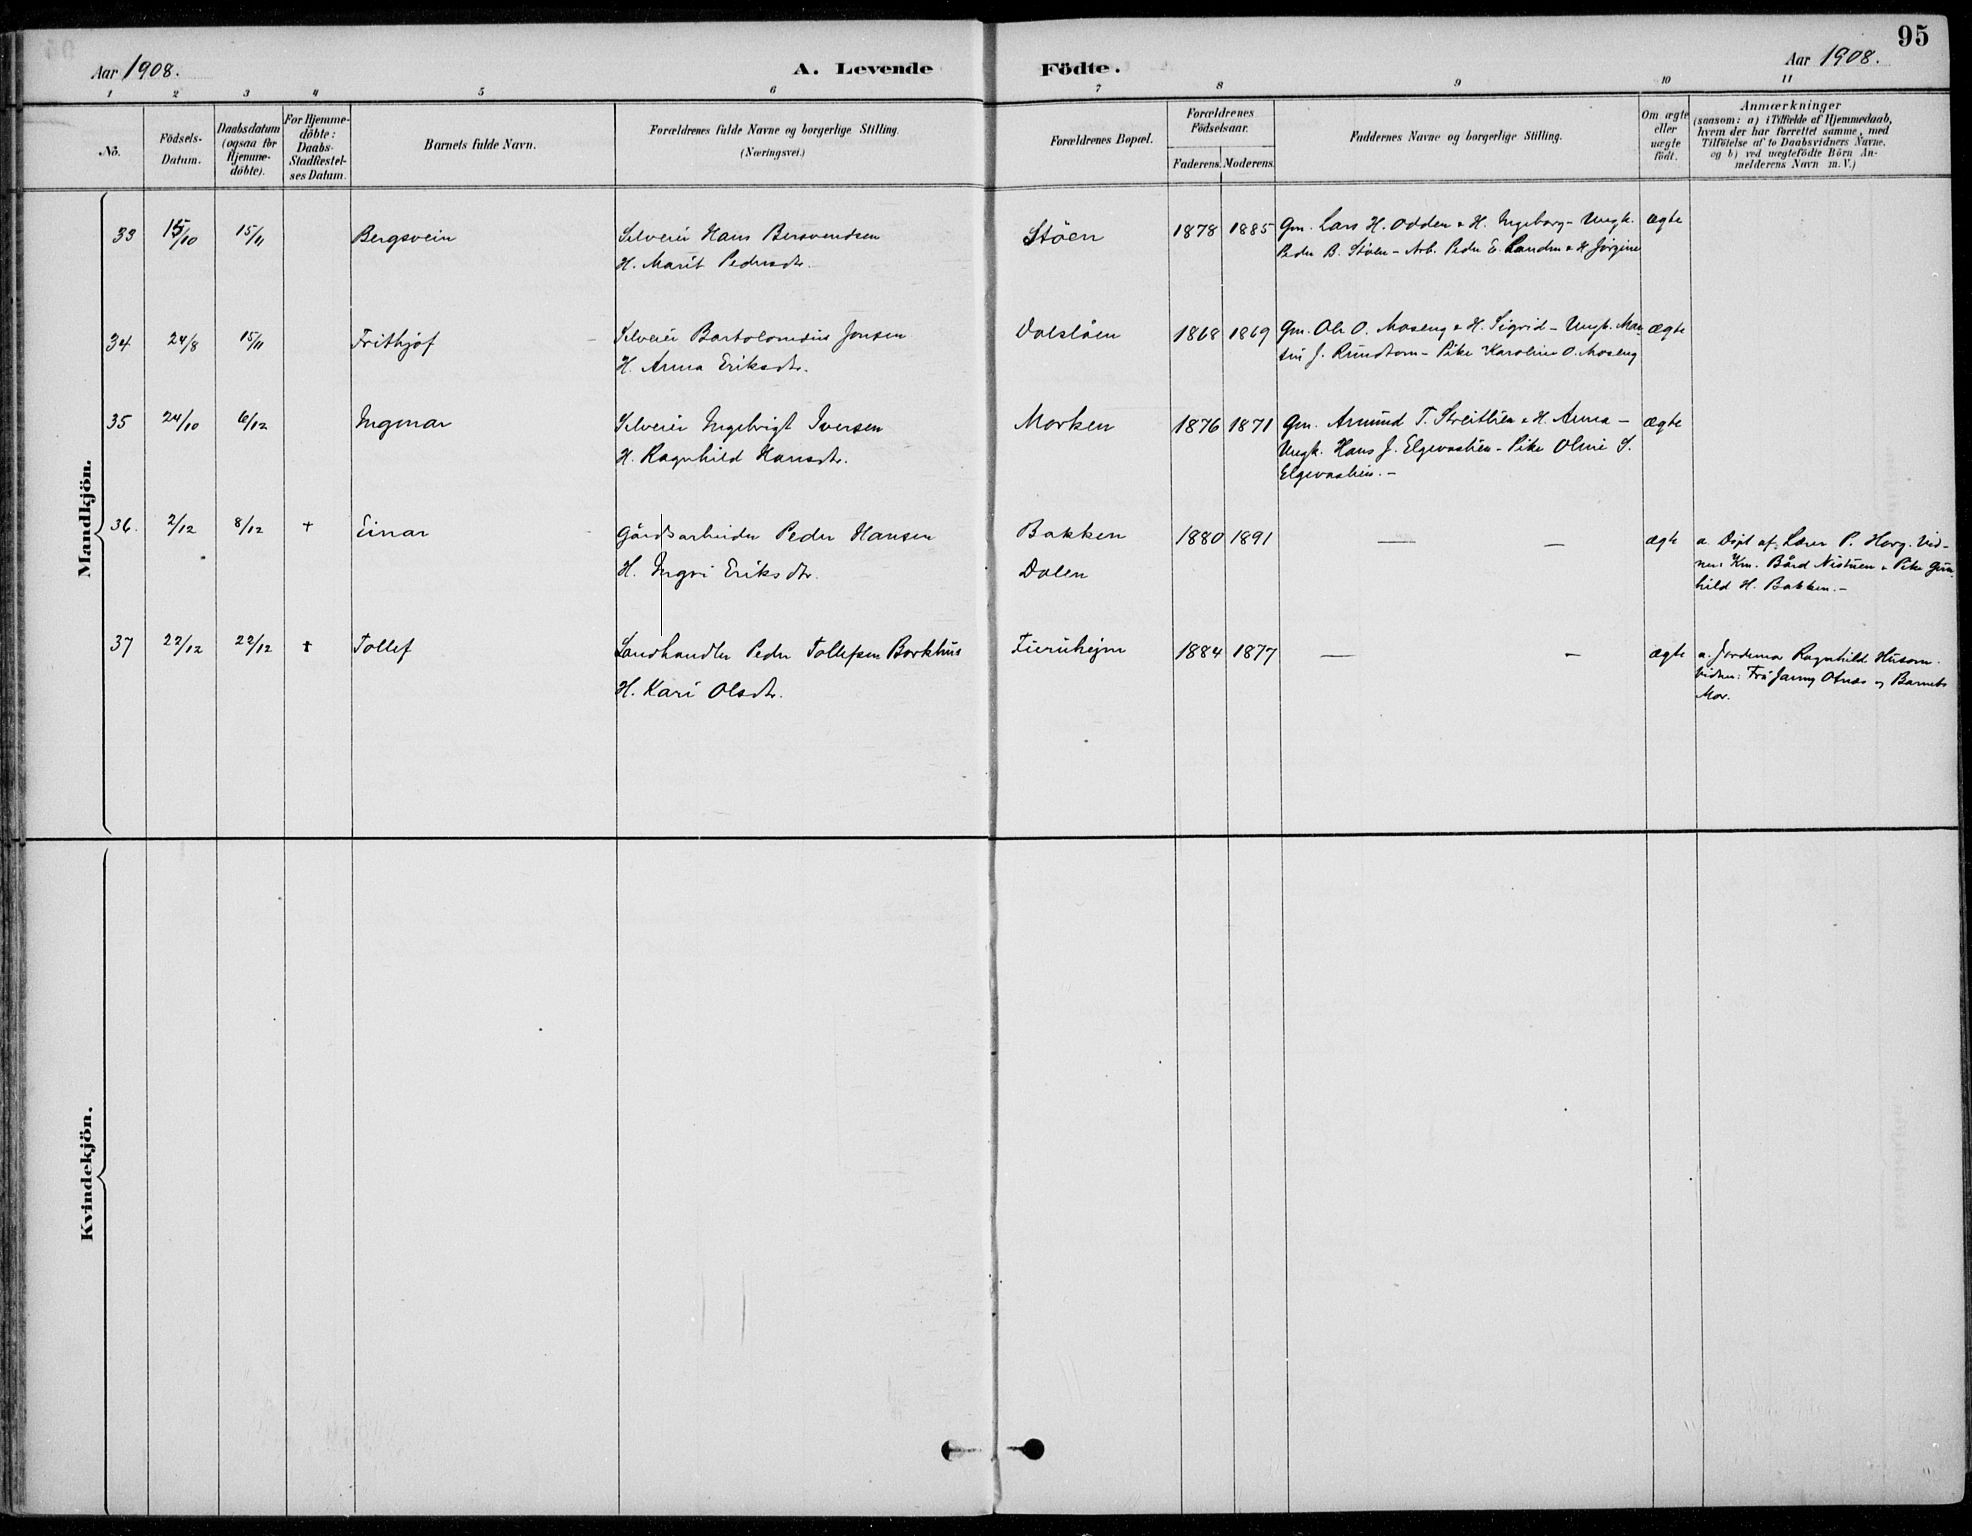 95
Aar 1908.
A. Levende Födte.
Aar 1908.
1 2 3 4 5 6 7 8 9 10 11
No.
Födsels-
Datum.
Daabsdatum
(ogsaa for
Hjemme-
döbte).
For Hjemme-
döbte:
Daabs-
Stadfæstel-
ses Datum.
Barnets fulde Navn.
Forældrenes fulde Navne og borgerlige Stilling.
(Næringsvei.)
Forældrenes Bopæl.
Forældrenes
Födselsaar.
Faderens. Moderens.
Faddernes Navne og borgerlige Stilling.
Om ægte
eller
uægte
födt.
Anmærkninger
(saasom: a) i Tilfælde af Hjemmedaab,
hvem der har forrettet samme, med
Tilföielse af to Daabsvidners Navne,
og b) ved uægtefödte Börn An-
melderens Navn m. V.)
Mandkjön.
33 15/10 15/11 Bergsvein
Selveier Hans Bersvendsen
H. Marit Pedersdtr.
Stöen
1878 1885
Gm. Lars H. Odden & H. Ingeborg - Ungk.
Peder B. Stöen - Arb. Peder E. Sanden & H. Jörgine
ægte
34 24/8 15/11 Frithjof
Selveier Bartolomæus Jonsen
H. Anna Eriksdtr.
Dalslåen
1868 1869
Gm. Ole O. Moseng & H. Sigrid - Ungk.
J. Rundtom - Pike Karoline O. Moseng
ægte
35 24/10 6/12 Ingemar
Selveier Ingebrigt Iversen
H. Ragnhild Hansdtr.
Morken
1876 1871
Gm. Amund T. Streitlien & H. Anna -
Ungk. Hans J. Elgevaslien - Pike Oline S.
Elgevaslien. -
ægte
36. 2/12 8/12 + Einar
Gårdsarbeider Peder Hansen
H. Ingri Eriksdtr.
Bakken
Dalen
1880 1891
— —
ægte
a. Döpt af: Lærer P. Horg. Vid-
ner: Km. Bård Nistuen & Pike Gun-
hild H. Bakken. -
37 22/12 22/12 + Tollef
Landhandler Peder Tollefsen Borkhus
H. Kari Olsdtr.
Furuhejm
1884 1877
— —
ægte
a. Jordemor Ragnhild Husom.
Vidner: Fru Janny Otnæs og Barnets
Mor.
Kvindekjön.